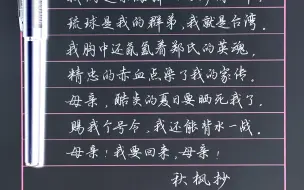 琉球是我的群弟，我就是台湾。
我胸中还氤氲着郑氏的英魂，
精忠的赤血点染了我的家传。
母亲，酷炎的夏日要晒死我了，
赐我个号令，我还能背水一战。
母亲！我要回来，母亲！
秋枫抄